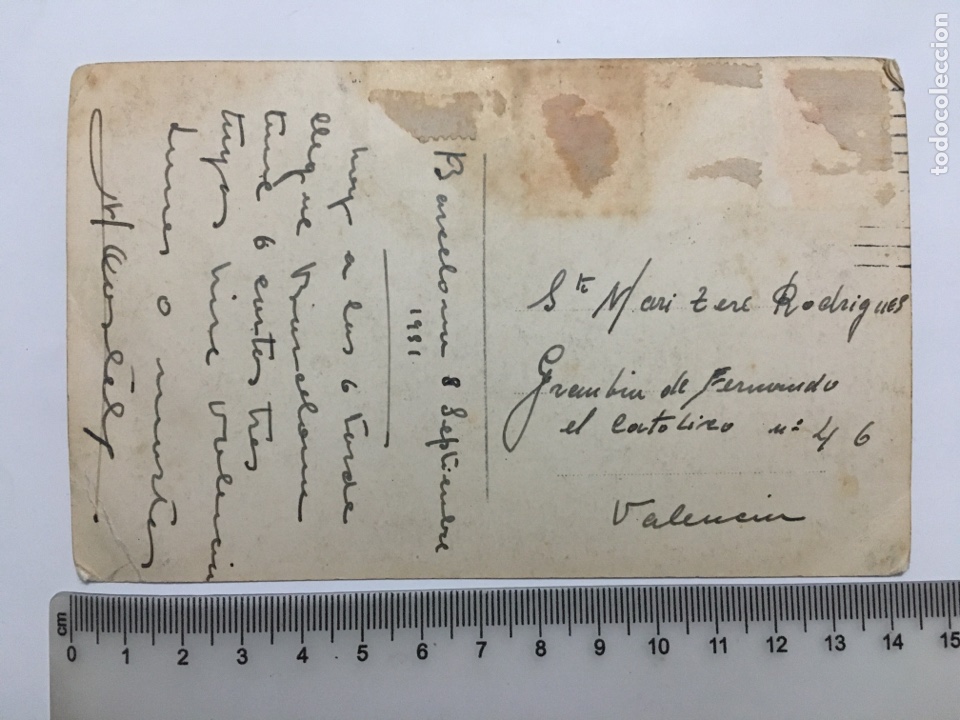 Barcelona 8 Septiembre
1931
hoy a las 6 tarde
llegue Barcelona
tuve 6 cartas tres
tuyas Valencia
Lunes o martes
Sta Mari Tere Rodrigues
Granbia de Fernando
el Catolico nº 46
Valencia
todocoleccion
cm
0 1 2 3 4 5 6 7 8 9 10 11 12 13 14 15